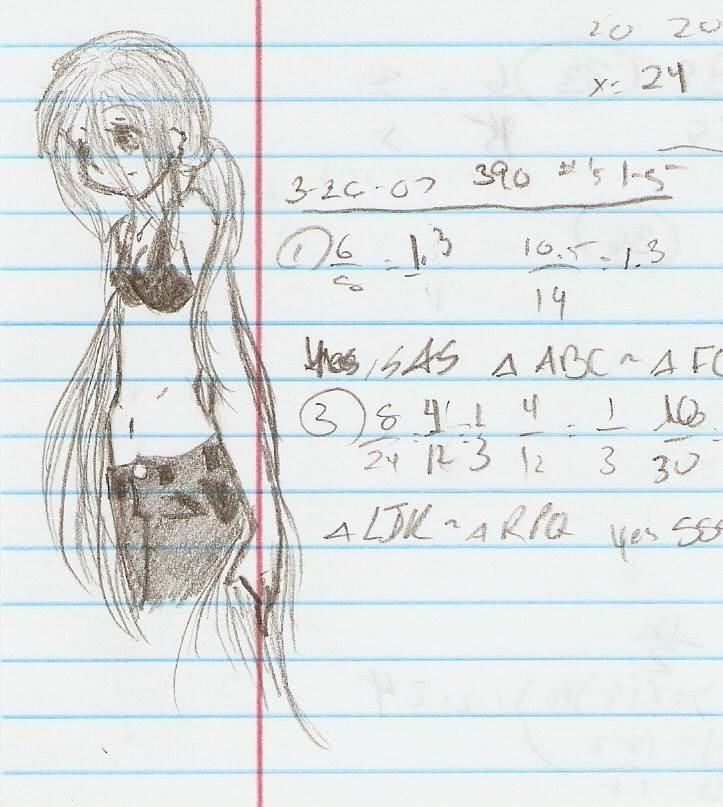 20 20
x= 24
3-26-07 390 #'s 1-5
① 6/8 = 1.3 10.5/14 = 1.3
Yes, SAS △ ABC ~ △ FC
③ 8/24 = 4/12 = 1/3 4/12 = 1/3 /30
△ LJK ~ △ RPQ yes SSS